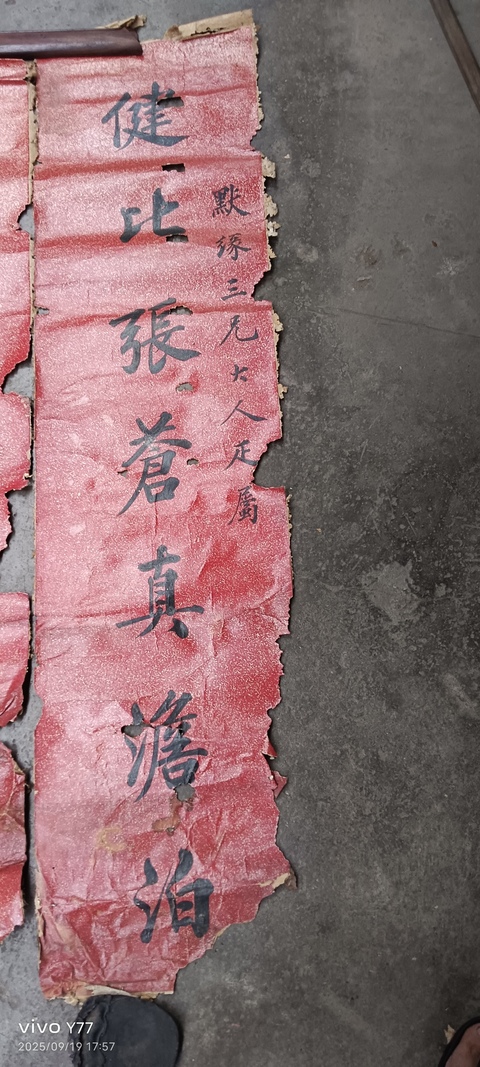 默緣三兄大人疋屬
健比張蒼真澹泊
vivo Y77
2025/09/19 17:57